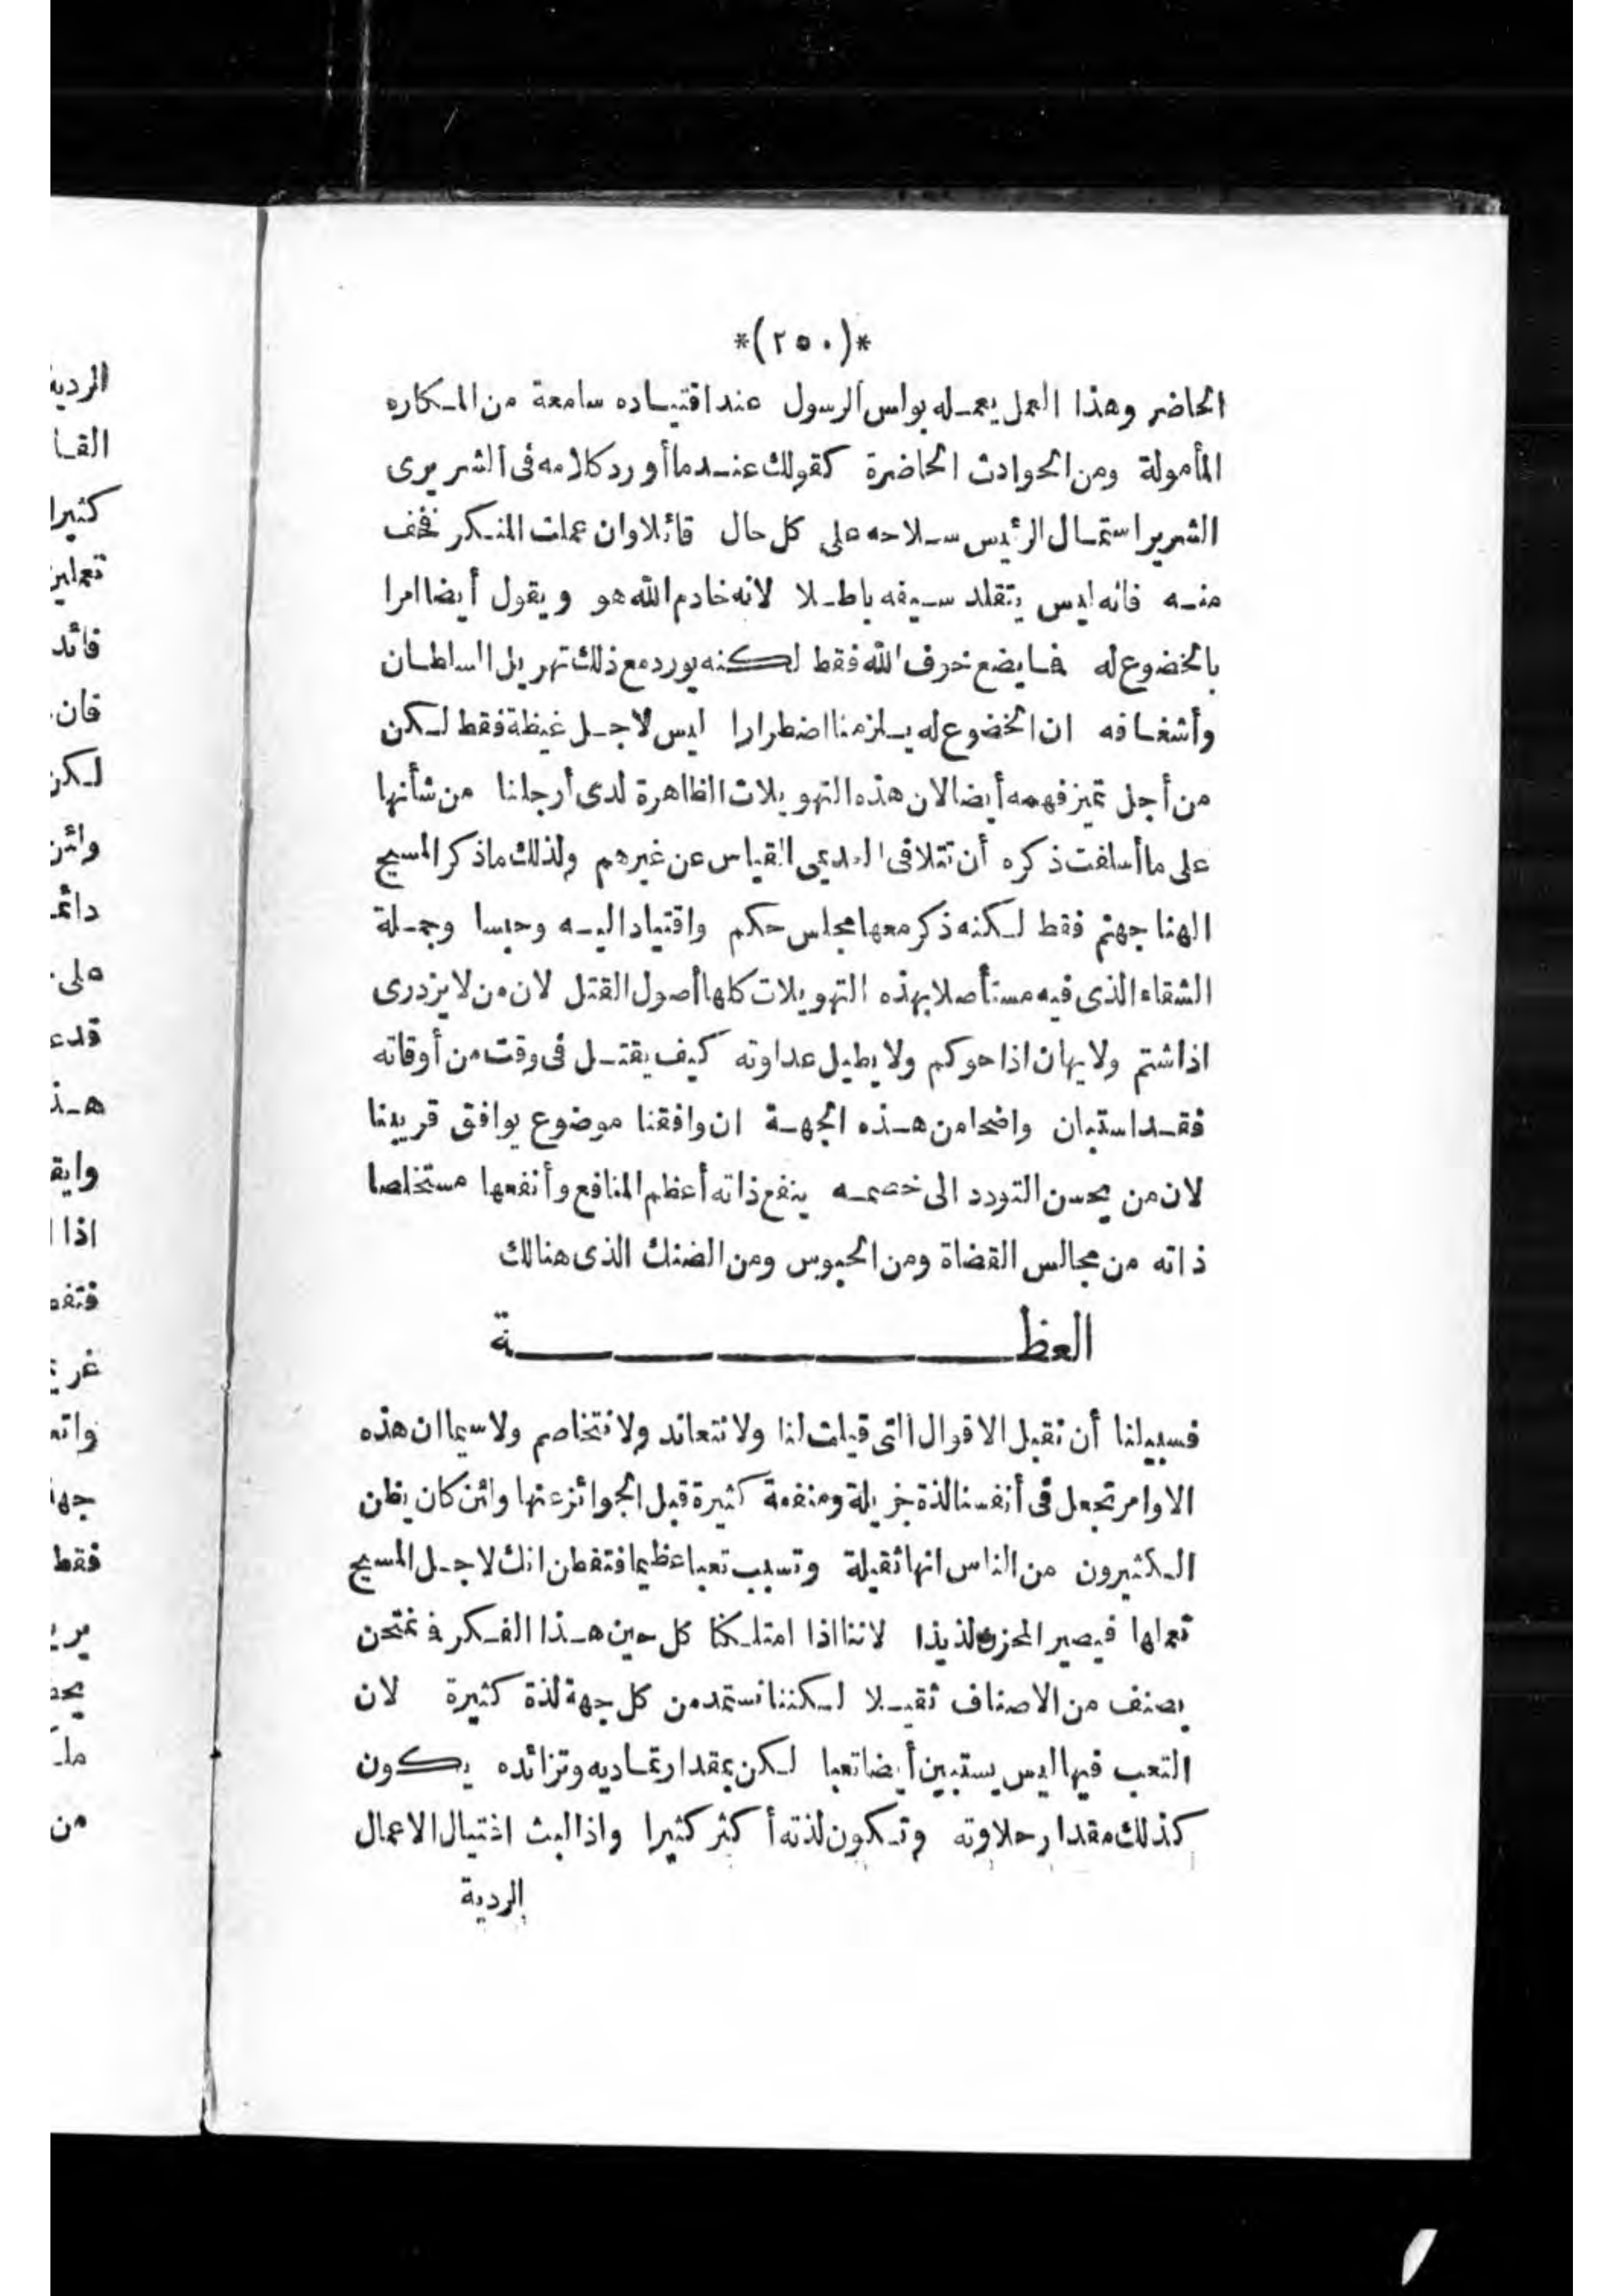 *(٢٥٠)*
الحاضر وهذا العمل يعمله بولس الرسول عند اقتياده سامعة من المكاره
المأمولة ومن الحوادث الحاضرة كقولك عندما أورد كلامه فى الشر يرى
الشرير استعمال الرئيس سلاحه على كل حال قائلا وان عملت المنكر فخف
منه فانه ليس يتقلد سيفه باطلا لانه خادم الله هو ويقول أيضا امرا
بالخضوع له فما يضع خوف الله فقط لكنه يورد مع ذلك تهويل السلطان
وأشغافه ان الخضوع له يلزمنا اضطرارا ليس لاجل غيظة فقط لكن
من أجل تميز فهمه أيضا لان هذه التهويلات الظاهرة لدى أرجلنا من شأنها
على ما أسلفت ذكره أن تتلافى العديمى القياس عن غيرهم ولذلك ماذكر المسيح
الهنا جهنم فقط لكنه ذكر معها مجلس حكم واقتيادا اليه وحبسا وجملة
الشقاء الذى فيه مستأصلا بهذه التهويلات كلها أصول القتل لان من لا يزدرى
اذا شتم ولا يهان اذا حوكم ولا يطيل عداوته كيف يقتل فى وقت من أوقاته
فقد استبان واضحا من هذه الجهة ان وافقنا موضوع يوافق قريبنا
لان من يحسن التودد الى خصمه ينفع ذاته أعظم المنافع وأنفعها مستخلصا
ذاته من مجالس القضاة ومن الحبوس ومن الضنك الذى هنالك
العظة
فسبيلنا أن نقبل الاقوال التى قيلت لنا ولا نتعاند ولا نتخاصم ولا سيما ان هذه
الاوامر تجعل فى أنفسنا لذة جزيلة ومنفعة كثيرة قبل الجوائز عنها وائن كان يظن
الكثيرون من الناس انها ثقيلة وتسبب تعبا عظيما فتفطن انك لاجل المسيح
تعملها فيصير المحزن لذيذا لاننا اذا امتلكنا كل حين هذا الفكر فنمتحن
بصنف من الاصناف ثقيلا لكننا نستمد من كل جهة لذة كثيرة لان
التعب فيها ليس يستبين أيضا تعبا لكن بمقدار تماديه وتزائده يكون
كذلك مقدار حلاوته وتكون لذته أكثر كثيرا واذا لبث اغتيال الاعمال
الردية